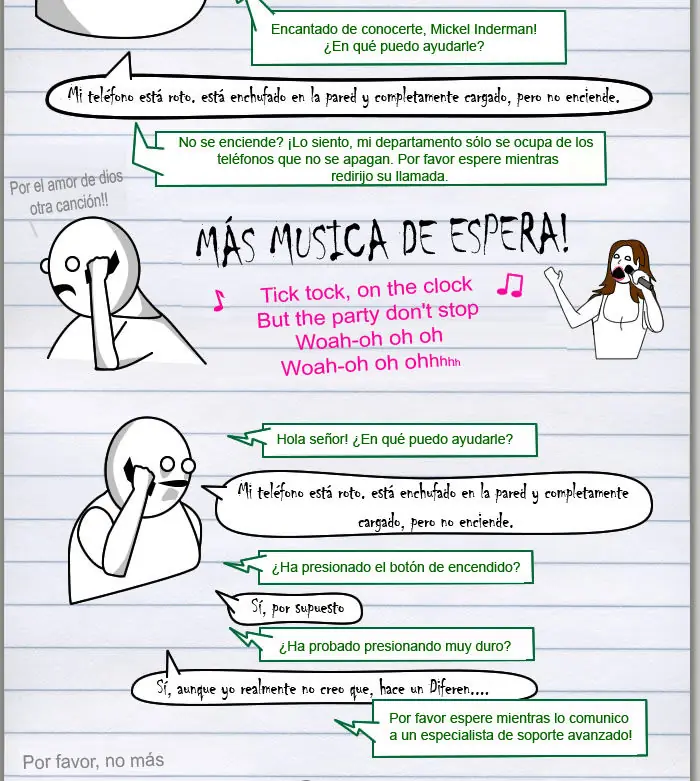 Encantado de conocerte, Mickel Inderman!
¿En qué puedo ayudarle?
Mi teléfono está roto. está enchufado en la pared y completamente cargado, pero no enciende.
No se enciende? ¡Lo siento, mi departamento sólo se ocupa de los
teléfonos que no se apagan. Por favor espere mientras
redirijo su llamada.
Por el amor de dios
otra canción!!
MÁS MUSICA DE ESPERA!
Tick tock, on the clock
But the party don't stop
Woah-oh oh oh
Woah-oh oh ohhhhh
Hola señor! ¿En qué puedo ayudarle?
Mi teléfono está roto. está enchufado en la pared y completamente
cargado, pero no enciende.
¿Ha presionado el botón de encendido?
Sí, por supuesto
¿Ha probado presionando muy duro?
Sí, aunque yo realmente no creo que, hace un Diferen....
Por favor espere mientras lo comunico
a un especialista de soporte avanzado!
Por favor, no más